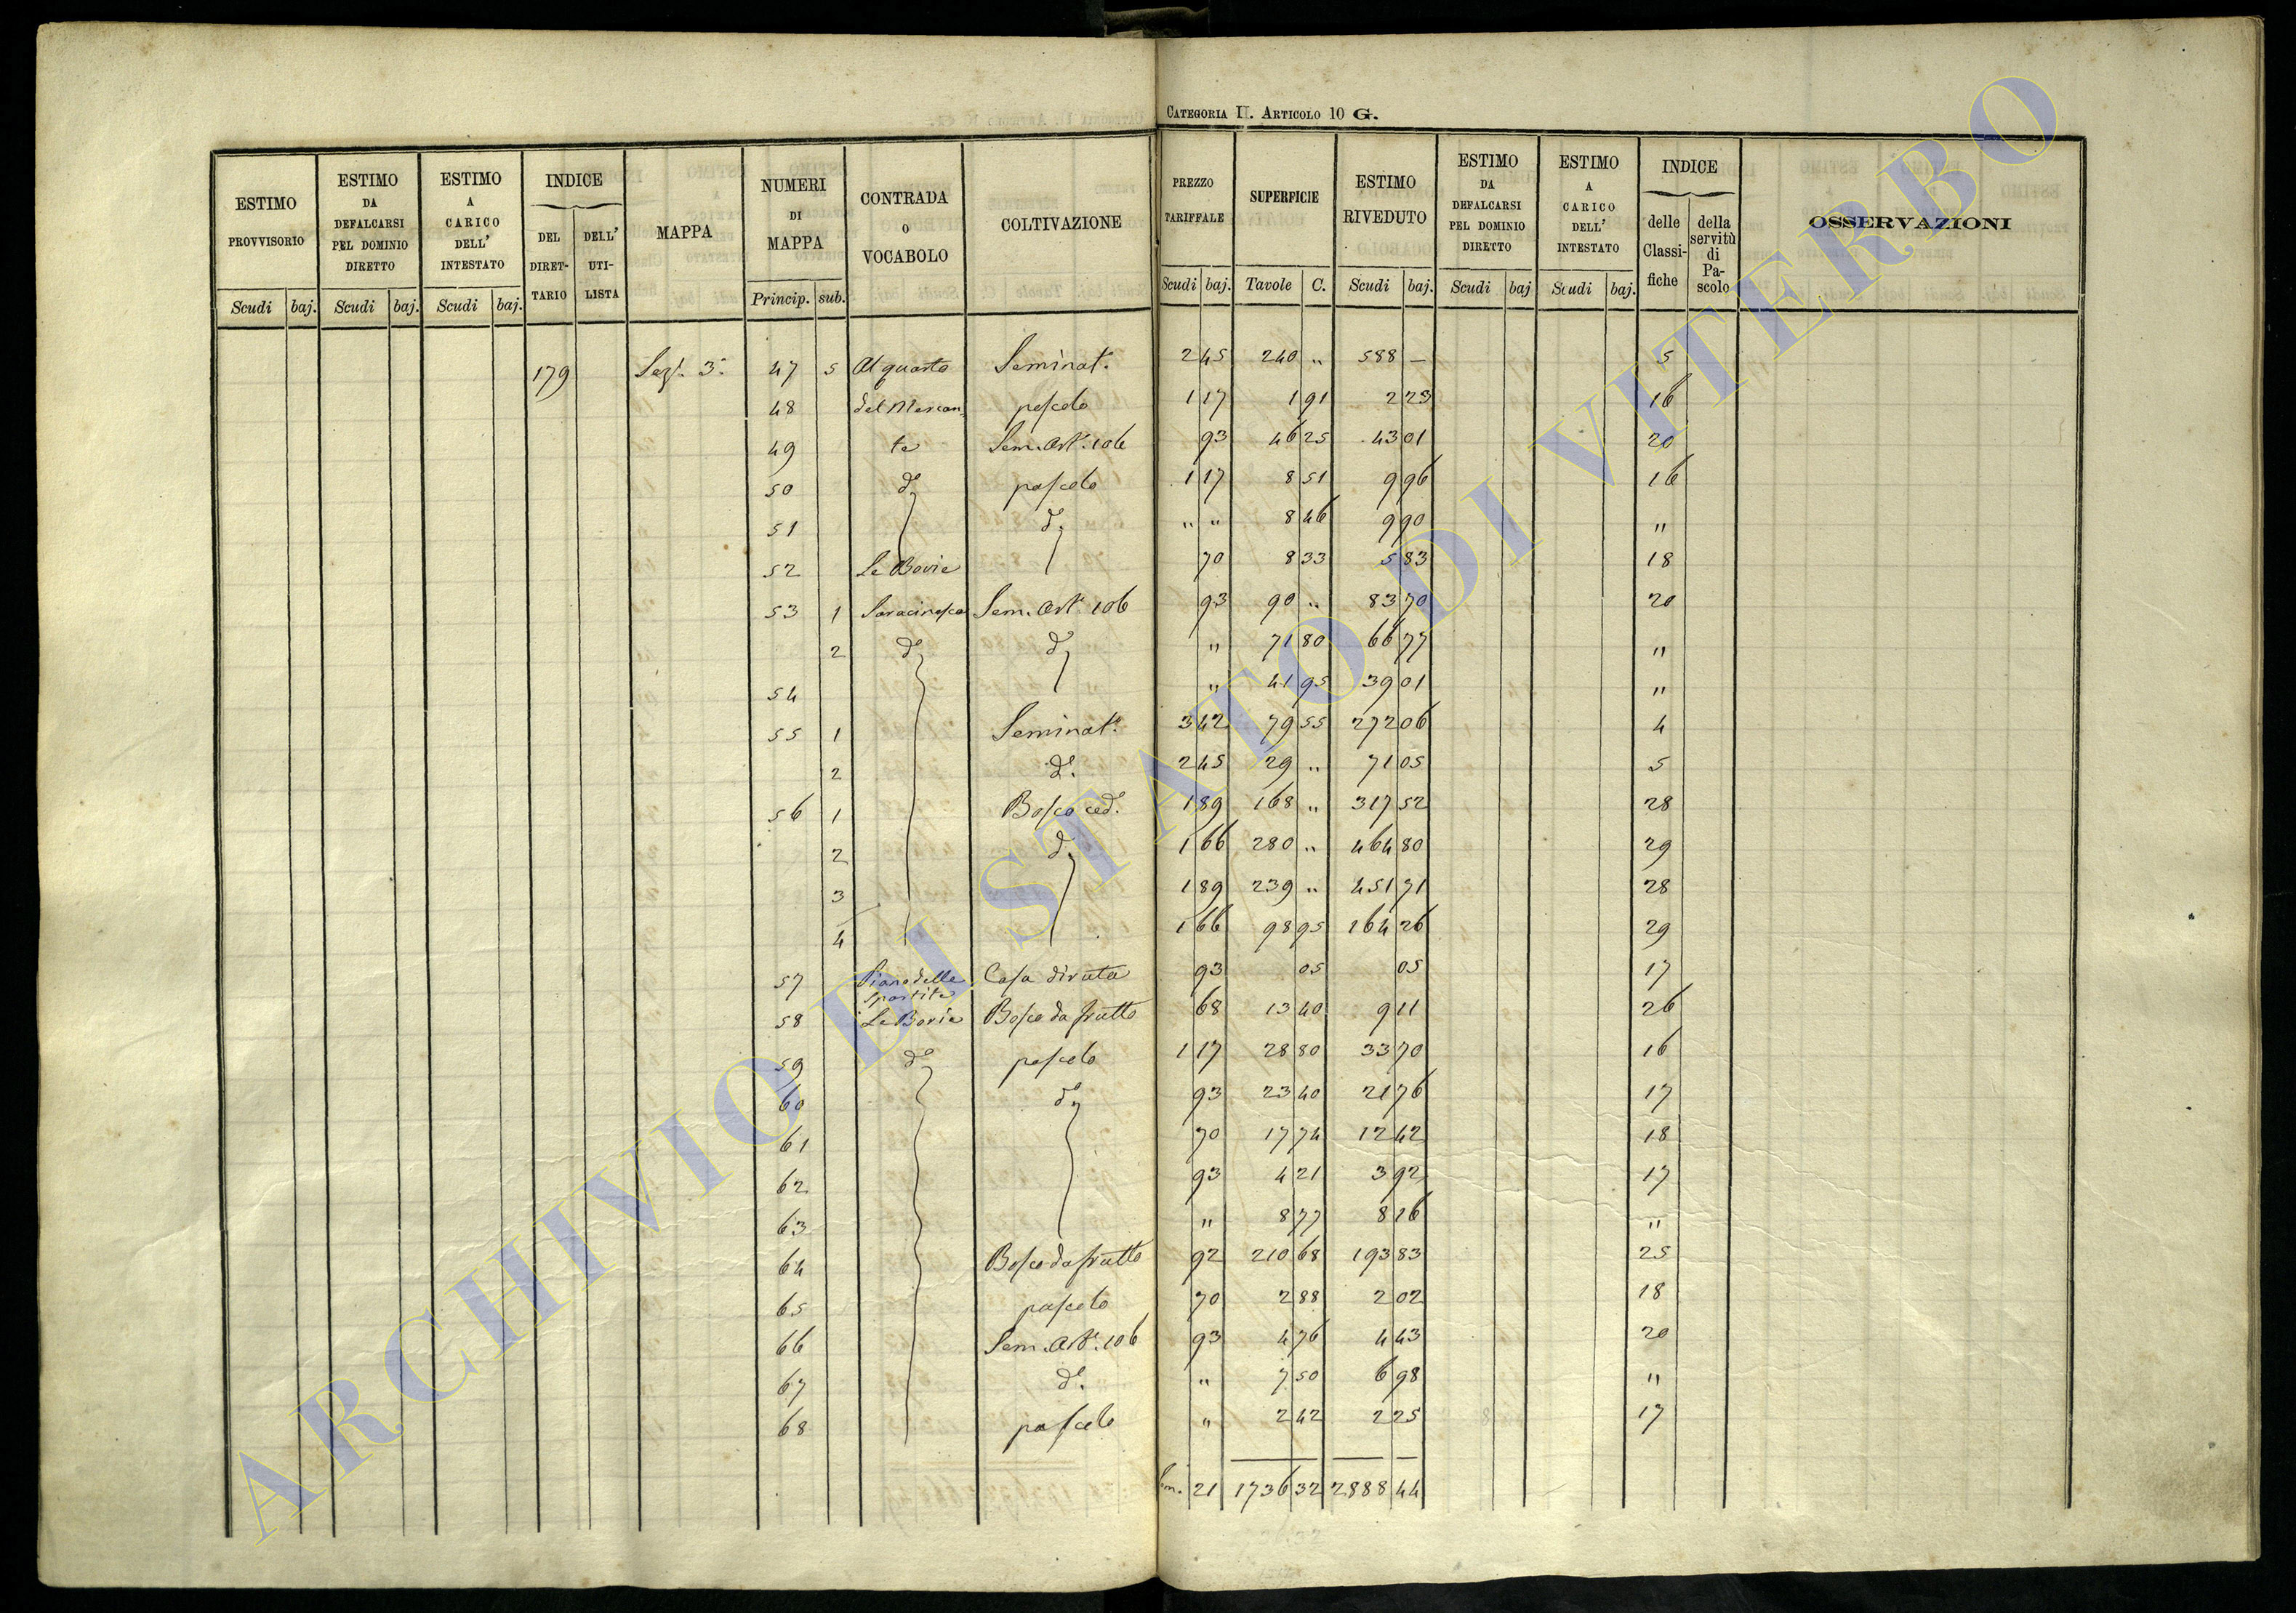 CATEGORIA II. ARTICOLO 10 G.
ESTIMO PROVVISORIO | ESTIMO DA DEFALCARSI PEL DOMINIO DIRETTO | ESTIMO A CARICO DELL' INTESTATO | INDICE DEL DIRETTARIO | DELL' UTILISTA | MAPPA | NUMERI DI MAPPA | CONTRADA O VOCABOLO | COLTIVAZIONE | PREZZO TARIFFALE | SUPERFICIE | ESTIMO RIVEDUTO | ESTIMO DA DEFALCARSI PEL DOMINIO DIRETTO | ESTIMO A CARICO DELL' INTESTATO | INDICE delle Classifiche | della servitù di Pascolo | OSSERVAZIONI
Scudi | baj. | Scudi | baj. | Scudi | baj. | Princip. | sub. | Scudi | baj. | Tavole | C. | Scudi | baj. | Scudi | baj | Scudi | baj.
179 | Sez.e 3.a | 47 | 5 | Al quarto | Seminat.o | 2 | 45 | 240 | " | 588 | — | 5
48 | del Mercan= | pascolo | 1 | 17 | 1 | 91 | 2 | 23 | 16
49 | te | Sem. Art.o 106 | 93 | 46 | 25 | 43 | 01 | 20
50 | d.o | pascolo | 1 | 17 | 8 | 51 | 9 | 96 | 16
51 | d.o | " | " | 8 | 46 | 9 | 90 | "
52 | Le Bovie | 70 | 8 | 33 | 5 | 83 | 18
53 | 1 | Saracinesca | Sem. Art.o 106 | 93 | 90 | " | 83 | 70 | 20
2 | d.o | d.o | " | 71 | 80 | 66 | 77 | "
54 | " | 41 | 95 | 39 | 01 | "
55 | 1 | Seminat.o | 3 | 42 | 79 | 55 | 272 | 06 | 4
2 | d.o | 2 | 45 | 29 | " | 71 | 05 | 5
56 | 1 | Bosco ced.o | 1 | 89 | 168 | " | 317 | 52 | 28
2 | d.o | 1 | 66 | 280 | " | 464 | 80 | 29
3 | 1 | 89 | 239 | " | 451 | 71 | 28
4 | 1 | 66 | 98 | 95 | 164 | 26 | 29
57 | Piano delle Spartite | Casa diruta | 93 | 05 | 05 | 17
58 | Le Bovie | Bosco da frutto | 68 | 13 | 40 | 9 | 11 | 26
59 | d.o | pascolo | 1 | 17 | 28 | 80 | 33 | 70 | 16
60 | d.o | 93 | 23 | 40 | 21 | 76 | 17
61 | 70 | 17 | 74 | 12 | 42 | 18
62 | 93 | 4 | 21 | 3 | 92 | 17
63 | " | 8 | 77 | 8 | 16 | "
64 | Bosco da frutto | 92 | 210 | 68 | 193 | 83 | 25
65 | pascolo | 70 | 2 | 88 | 2 | 02 | 18
66 | Sem. Art.o 106 | 93 | 4 | 76 | 4 | 43 | 20
67 | d.o | " | 7 | 50 | 6 | 98 | "
68 | pascolo | " | 2 | 42 | 2 | 25 | 17
21 | 1736 | 32 | 2888 | 44
ARCHIVIO DI STATO DI VITERBO